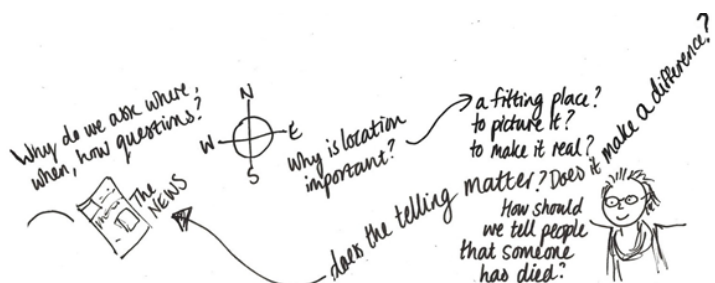 Why do we ask where,
when, how questions?
The
NEWS
N
W
E
S
Why is location
important?
a fitting place?
to picture it?
to make it real?
does the telling matter? Does it make a difference?
How should
we tell people
that someone
has died?